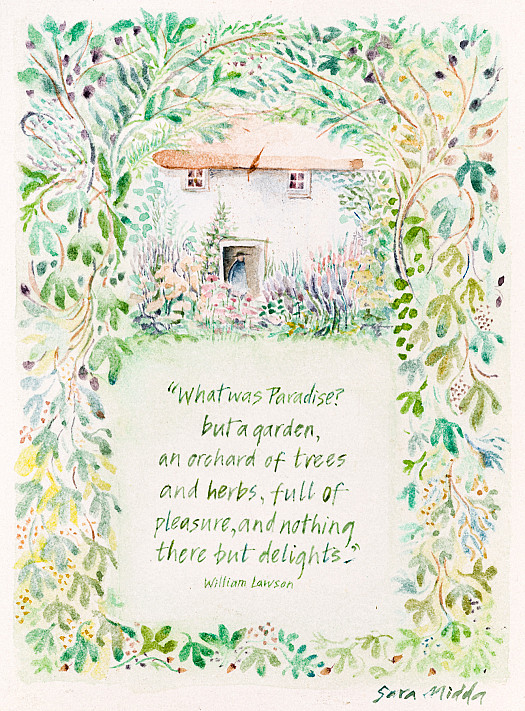 "What was Paradise?
but a garden,
an orchard of trees
and herbs, full of
pleasure, and nothing
there but delights."
William Lawson
Sara Midda